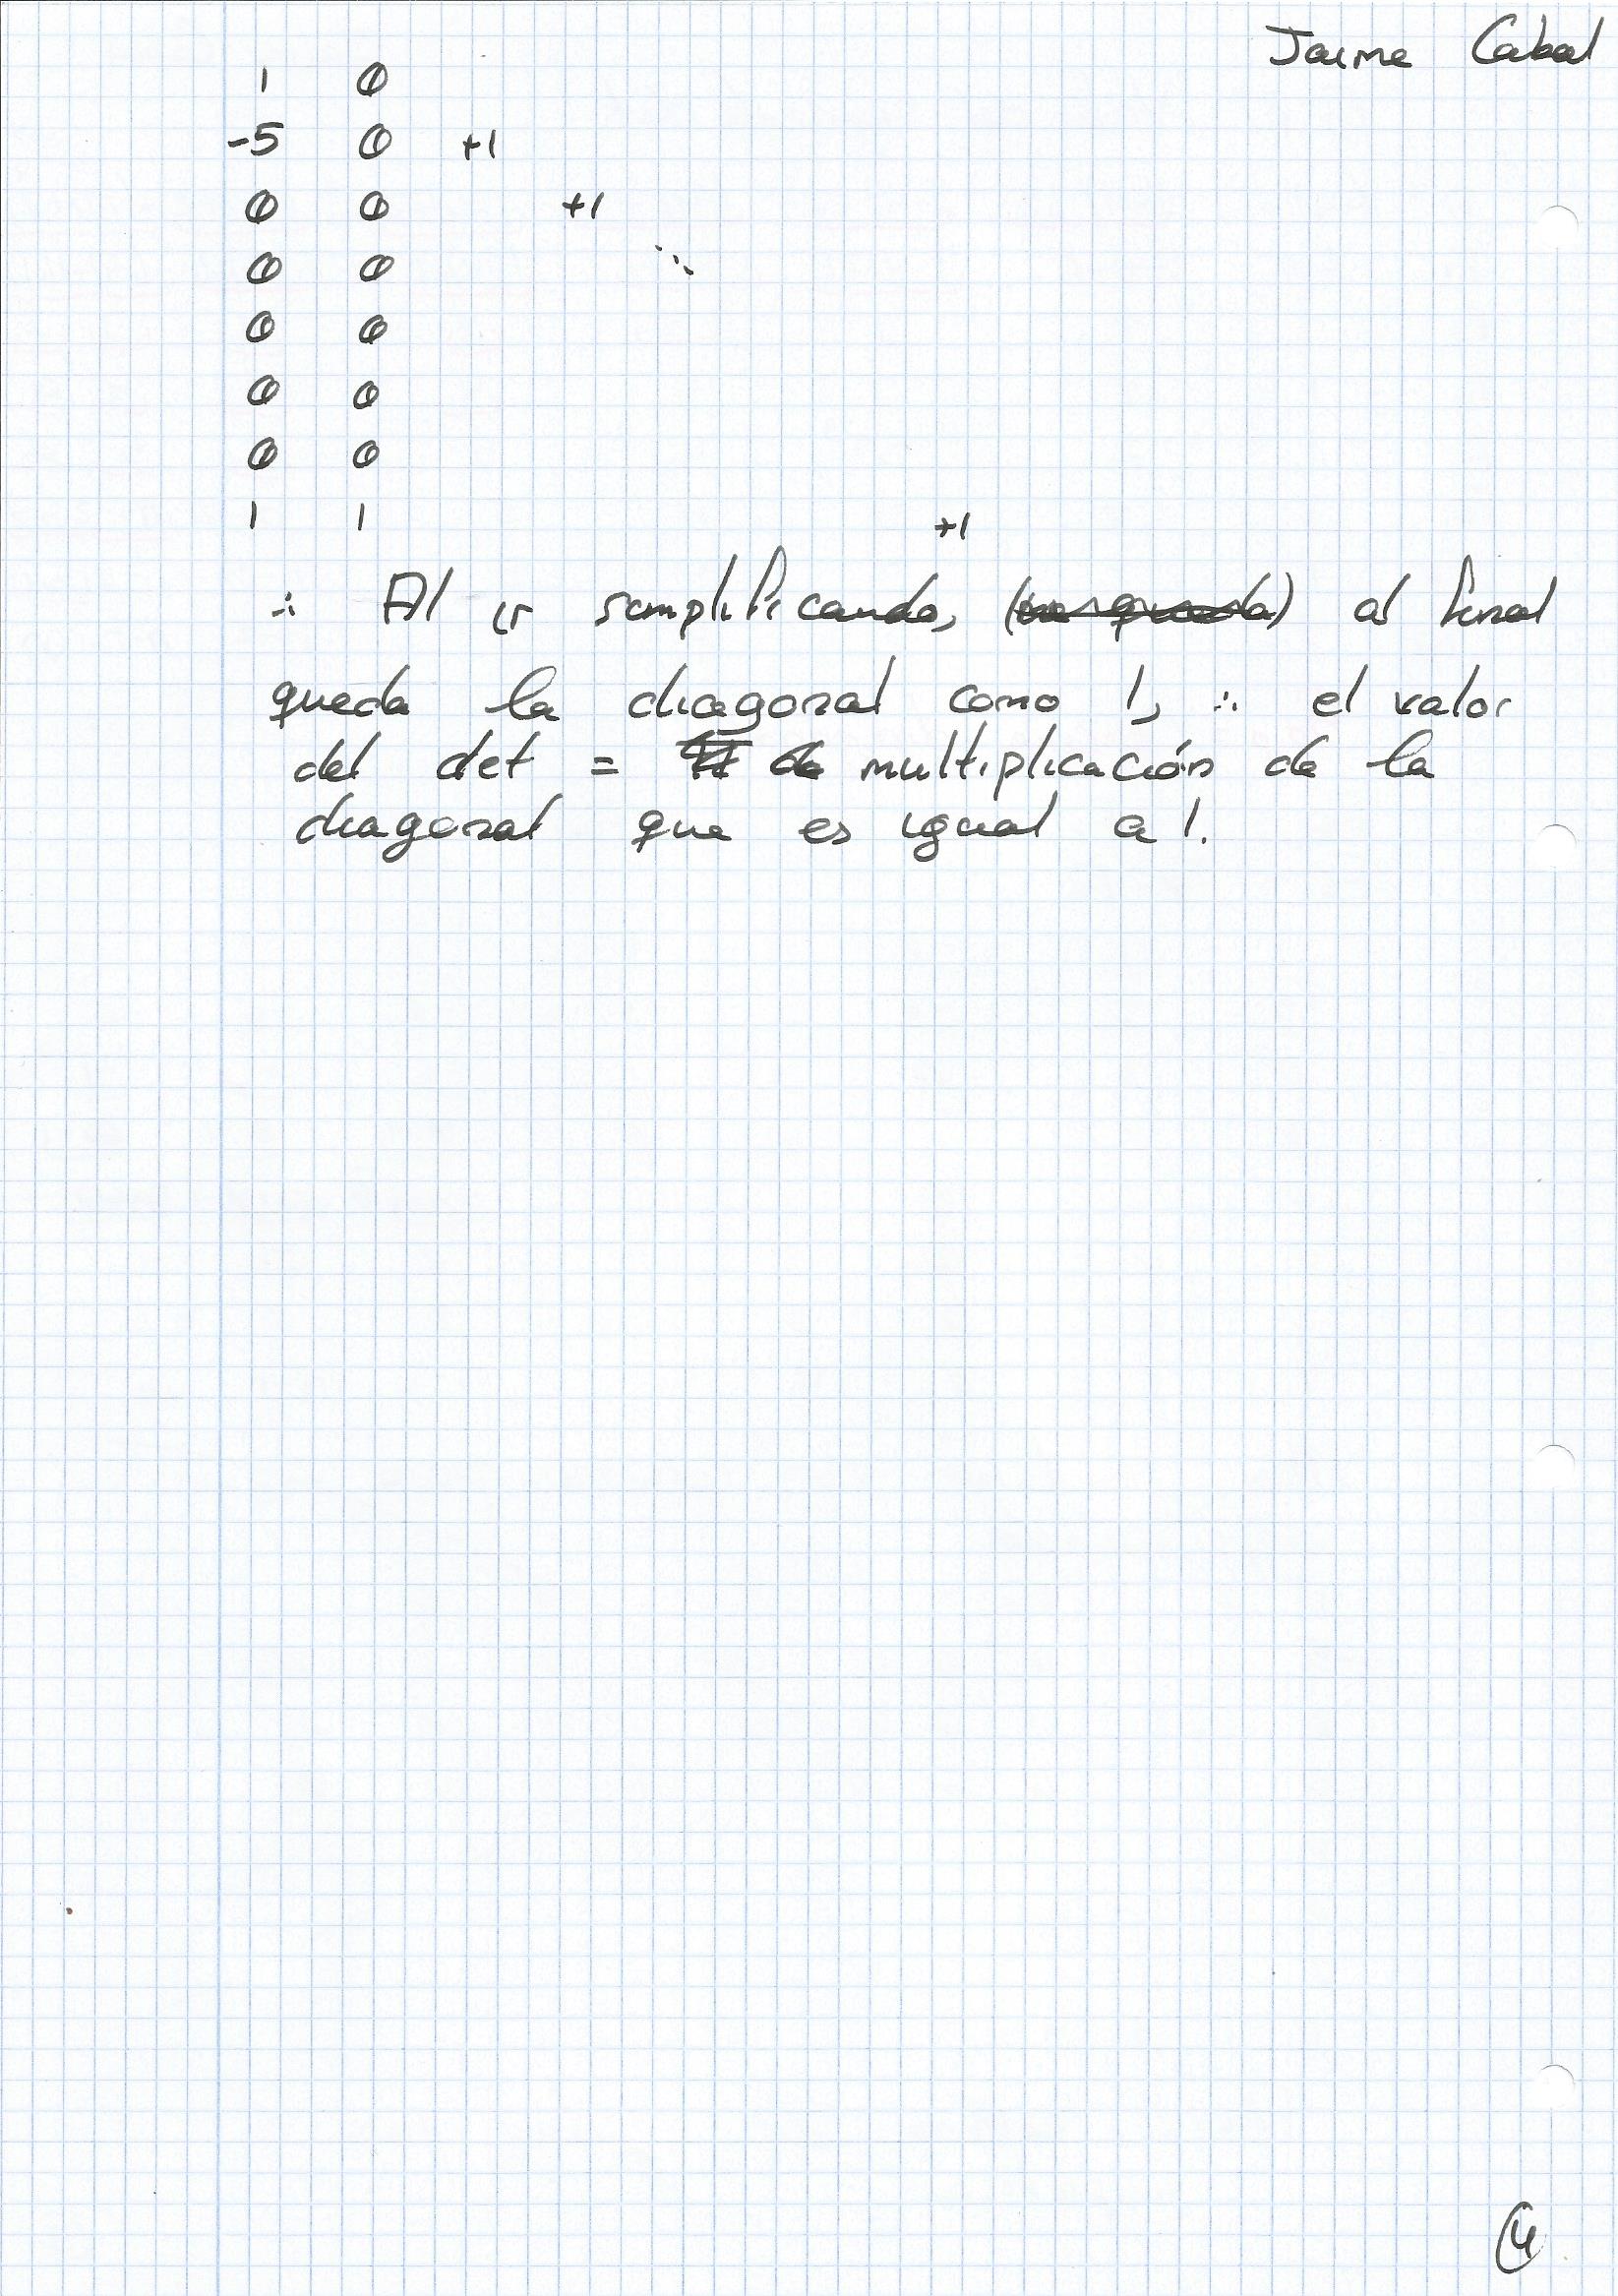 Jaime Cabal
1 0
-5 0 +1
0 0 +1
0 0 ⋱
0 0
0 0
0 0
1 1 +1
∴ Al ir simplificando, al final
queda la diagonal como 1, ∴ el valor
del det = multiplicación de la
diagonal que es igual a 1.
4